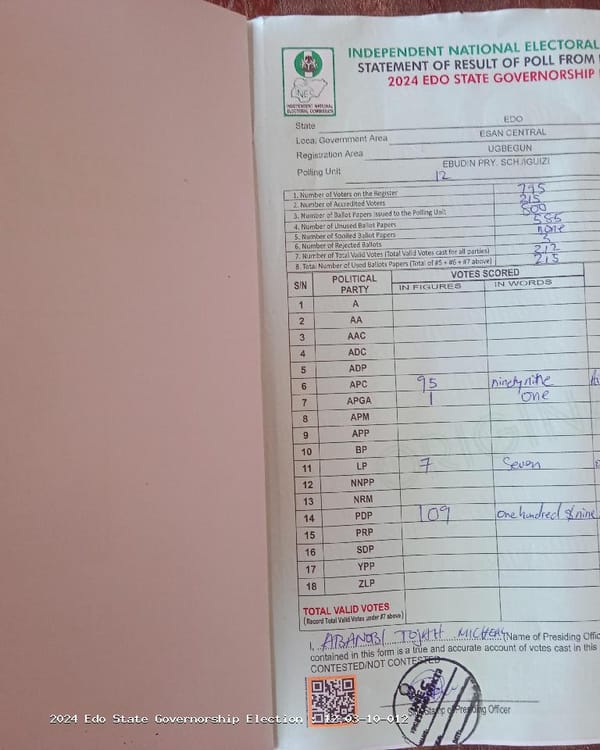 INDEPENDENT NATIONAL ELECTORAL
STATEMENT OF RESULT OF POLL FROM
2024 EDO STATE GOVERNORSHIP
INEC
INDEPENDENT NATIONAL
ELECTORAL COMMISSION
State EDO
Local Government Area ESAN CENTRAL
Registration Area UGBEGUN
Polling Unit EBUDIN PRY. SCH./IGUIZI
12
1. Number of Voters on the Register 795
2. Number of Accredited Voters 215
3. Number of Ballot Papers Issued to the Polling Unit 800
4. Number of Unused Ballot Papers 585
5. Number of Spoiled Ballot Papers none
6. Number of Rejected Ballots
7. Number of Total Valid Votes (Total Valid Votes cast for all parties) 212
8. Total Number of Used Ballots Papers (Total of #5 + #6 + #7 above) 215
S/N POLITICAL PARTY VOTES SCORED
IN FIGURES IN WORDS
1 A
2 AA
3 AAC
4 ADC
5 ADP
6 APC 95 ninety nine
7 APGA 1 one
8 APM
9 APP
10 BP
11 LP 7 Seven
12 NNPP
13 NRM
14 PDP 109 one hundred & nine
15 PRP
16 SDP
17 YPP
18 ZLP
TOTAL VALID VOTES
(Record Total Valid Votes under #7 above)
I, MICHEAL (Name of Presiding Offic
contained in this form is a true and accurate account of votes cast in this
CONTESTED/NOT CONTESTED
Stamp of Presiding Officer
2024 Edo State Governorship Election 12-03-10-012